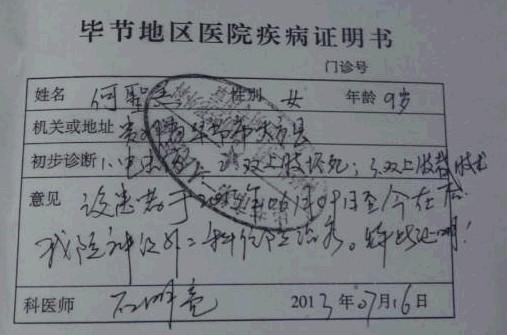 毕节地区医院疾病证明书
门诊号
姓名 何聖杰 性别 女 年龄 9岁
机关或地址 贵州省毕节市大方县
初步诊断 1、电击伤; 2、双上肢坏死; 3、双上肢截肢术后
意见 该患者于2013年06月09日至今在
我院神经外二科住院治疗。特此证明!
科医师 石明亮 2013年07月16日